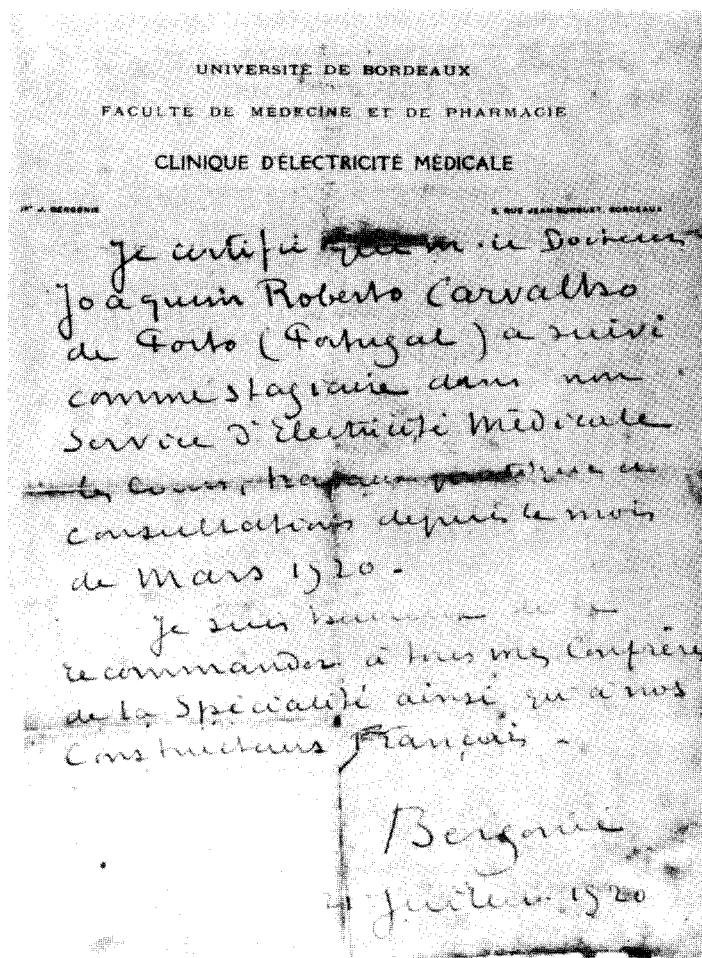 UNIVERSITÉ DE BORDEAUX
FACULTÉ DE MÉDECINE ET DE PHARMACIE
CLINIQUE D'ÉLECTRICITÉ MÉDICALE
Pr J. BERGONIÉ
2, RUE JEAN-BURGUET, BORDEAUX
Je certifie que m. le Docteur
Joaquim Roberto Carvalho
de Porto (Portugal) a suivi
comme stagiaire dans mon
Service d'Electricité Médicale
les Cours, travaux pratiques et
Consultations depuis le mois
de Mars 1920.
Je suis heureux de le
recommander à tous mes Confrères
de la Spécialité ainsi qu'à nos
Constructeurs Français.
Bergonié
21 Juillet 1920